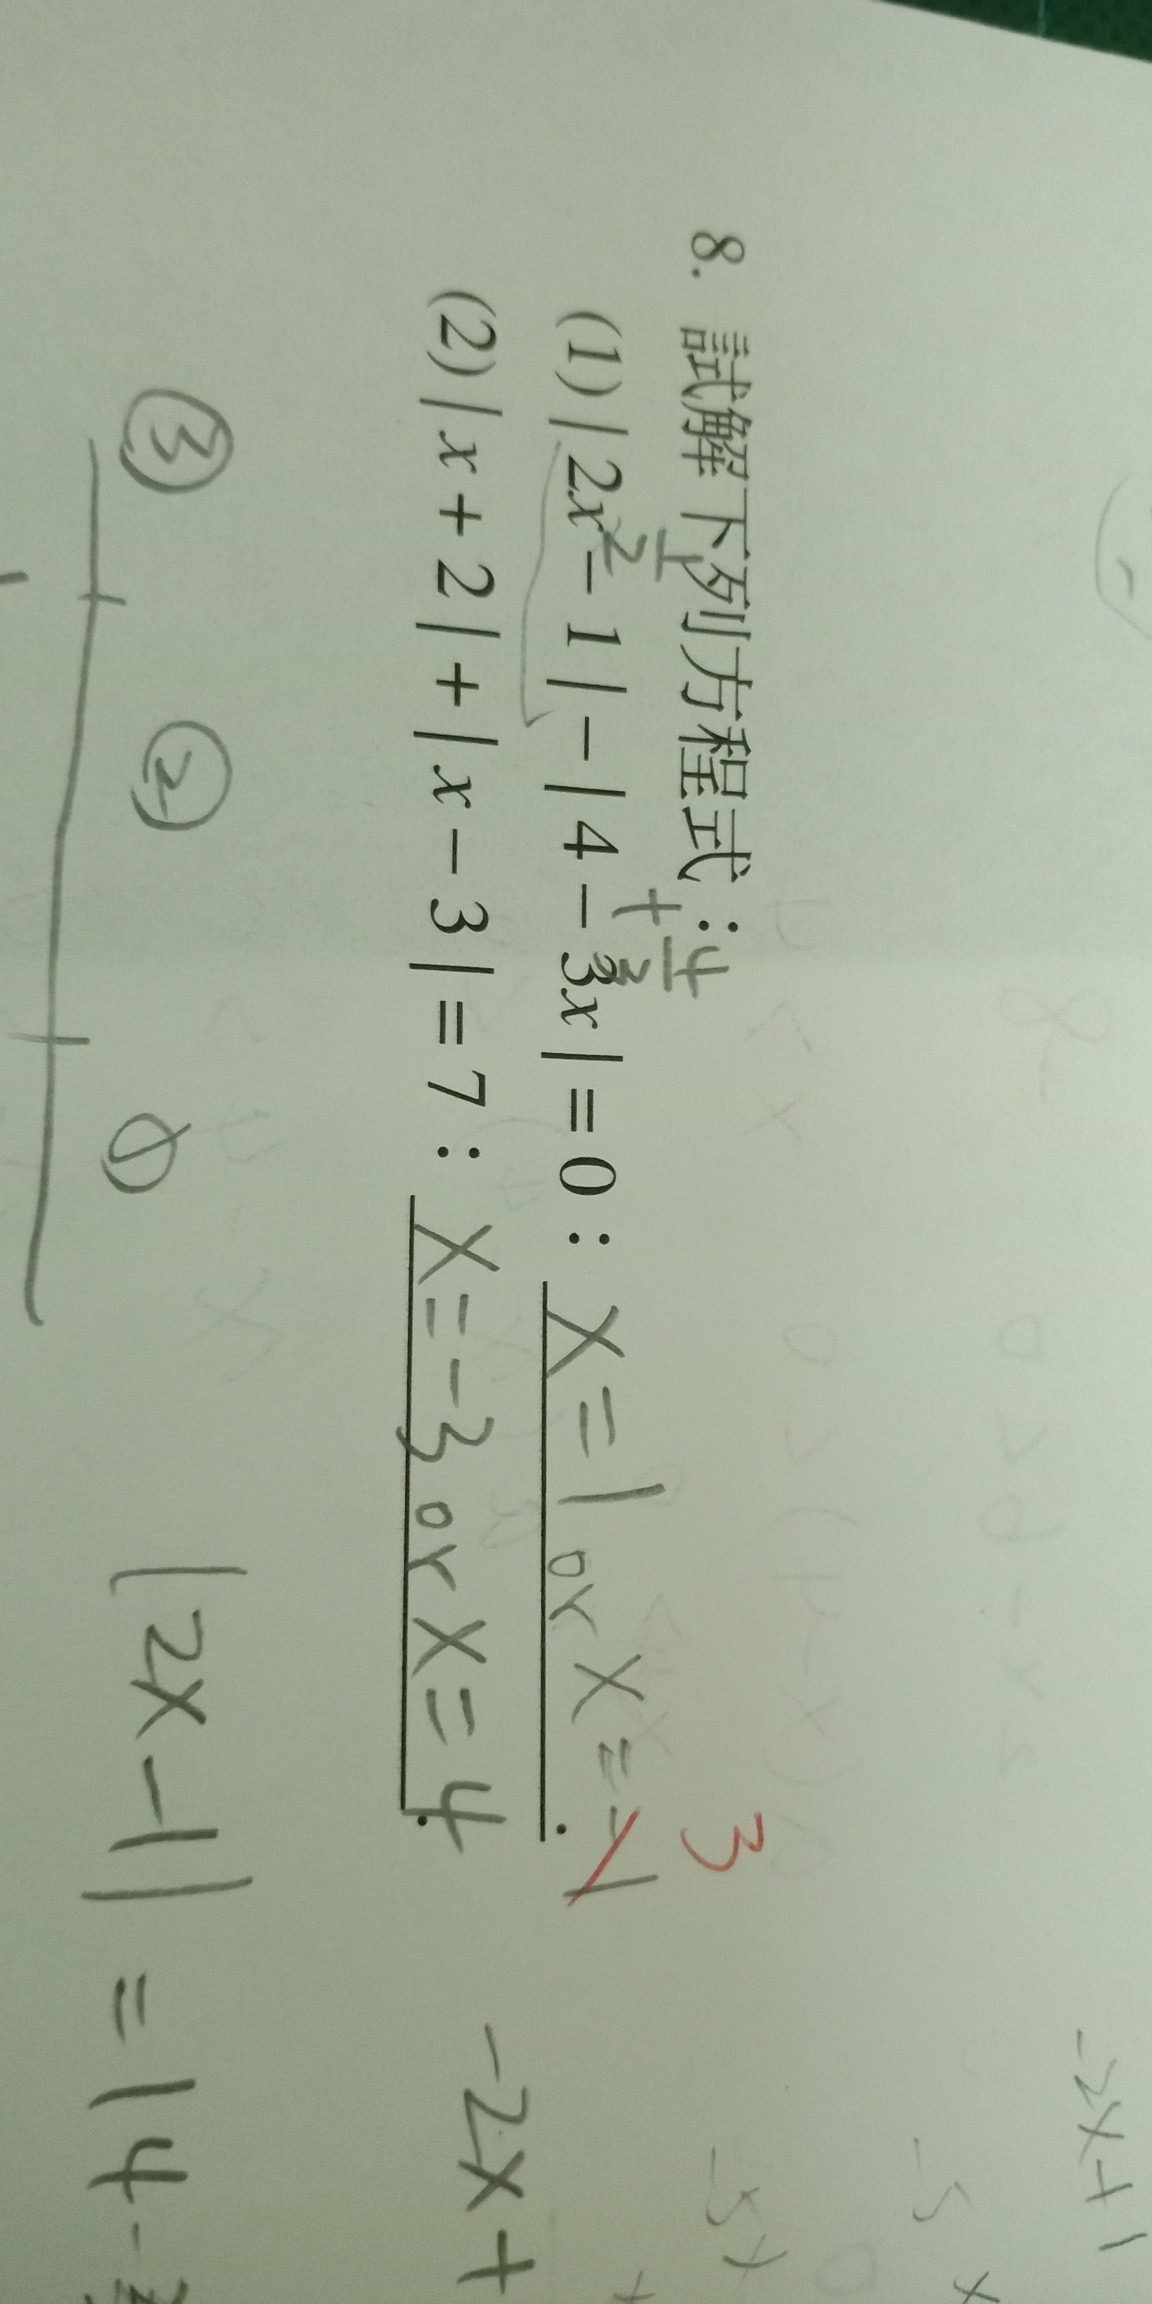 8. 試解下列方程式：
(1)|2x-1|-|4-3x|=0：X=1 or X=-1.
3
(2)|x+2|+|x-3|=7：X=-3 or X=4.
-2x+1
-2X+
③ ② ①
|2X-1|=|4-3